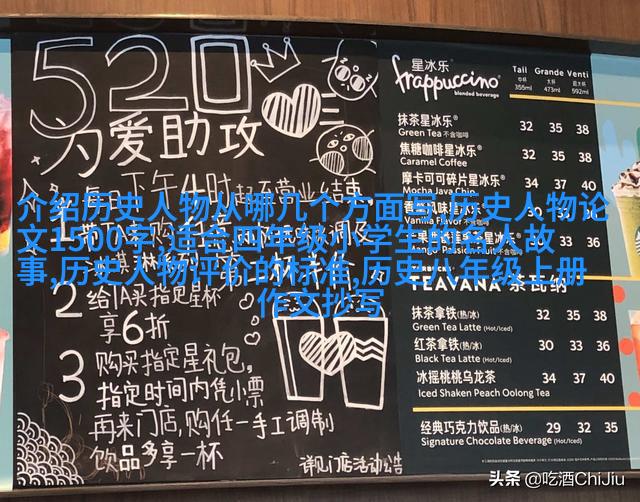 520
为爱助攻
每日下午4时起至营业结束,
2 给TA买指定星杯
享6折
3 购买指定星礼包,
指定时间内凭小票
再来门店,购任一手工调制
饮品多享一杯
详见门店活动公告
星冰乐®
frappuccino®
blended beverage
Tall Grande Venti
中杯 大杯 超大杯
355ml 473ml 592ml
抹茶星冰乐® 32 35 38
Green Tea 不含咖啡
焦糖咖啡星冰乐® 32 35 38
Caramel Coffee
摩卡可可碎片星冰乐® 34 37 40
Mocha Java Chip
Vanilla Flavor 不含咖啡
30 33 36
Mango Passion Fruit 不含咖啡
TEAVANA™ 茶瓦纳
抹茶拿铁(热/冰) 32 35 38
Green Tea Latte (Hot/Iced)
红茶拿铁(热/冰) 30 33 36
Black Tea Latte (Hot/Iced)
冰摇桃桃乌龙茶 34 37 40
Iced Shaken Peach Oolong Tea
经典巧克力饮品(热/冰) 29 32 35
Signature Chocolate Beverage (Hot/Iced)
介绍历史人物从哪几个方面写,历史人物论
文1500字,适合四年级小学生的名人故
事,历史人物评价的标准,历史八年级上册
作文抄写
头条 @吃酒ChiJiu